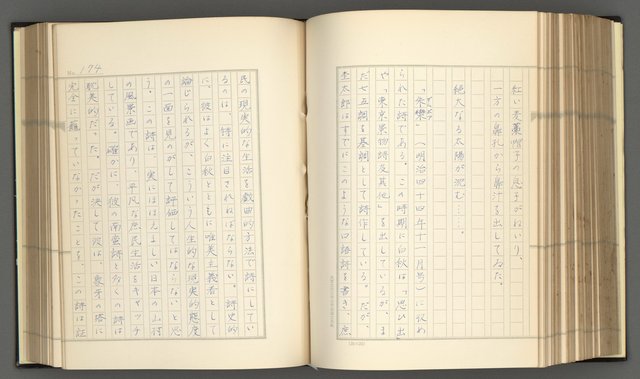 紅い麦藁帽子の息子がねいり、
一方の鼻孔から鼻汁を出してゐた。
絶大なる太陽が沈む……。
「朱欒」（明治四十四年十一月号）に収め
られた詩である。この時期に白秋は「思ひ出」
や「東京景物詩及其他」を出しているが、ま
だ七五調を基調として詩作している。だが、
杢太郎はすでにこのような口語詩を書き、庶
No. 174
民の現実的な生活を戯曲的方法で詩にしてい
るのは、特に注目されねばならない。詩史的
に、彼はよく白秋とともに唯美主義者として
論じられるが、こういう人生的な現実的態度
の一面を見のがして評価してはならないと思
う。この詩は、実にほほえましい日本の山村
の風景画であり、平凡な庶民生活をキャッチ
している。確かに、彼の南蛮詩と多くの詩は
耽美的だった。だが決して彼は、象牙の塔に
完全に籠っていなかったことを、この詩は証